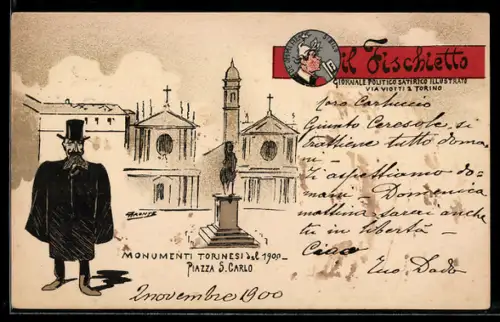 il Fischietto
GIORNALE POLITICO SATIRICO ILLUSTRATO
VIA VIOTTI 2 TORINO
Caro Carluccio
Giunto Ceresole si
trattiene tutto doma
ni -
T'aspettiamo do-
mani - Domenica
mattina sarai anche
tu in libertà -
Ciao
Tuo Dado
MONUMENTI TORINESI del 1900 -
PIAZZA S. CARLO.
2 novembre 1900